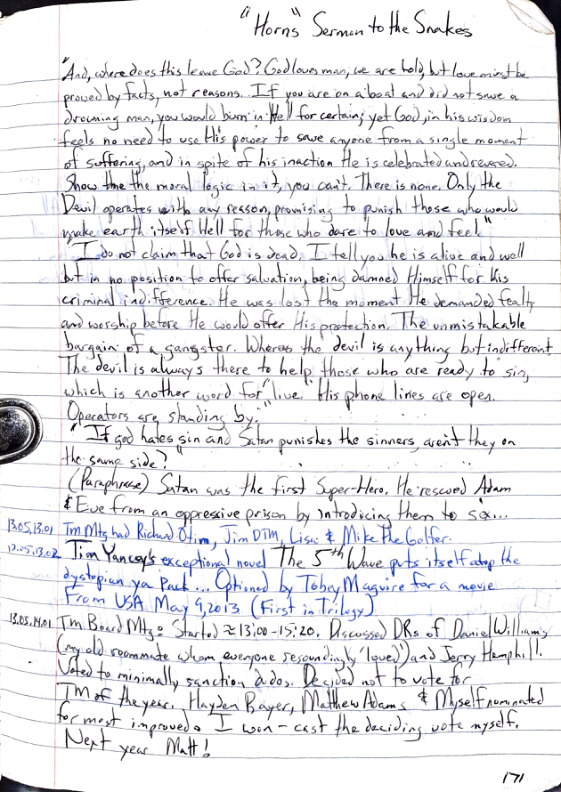 "Horns" Sermon to the Snakes
"And, where does this leave God? God loves man, we are told, but love must be
proved by facts, not reasons. If you are on a boat and did not save a
drowning man, you would burn in Hell for certain; yet God, in his wisdom
feels no need to use His power to save anyone from a single moment
of suffering, and in spite of his inaction He is celebrated and revered.
Show the the moral logic in it, you can't. There is none. Only the
Devil operates with any reason, promising to punish those who would
make earth itself Hell for those who dare to love and feel."
"I do not claim that God is dead. I tell you he is alive and well
but in no position to offer salvation, being damned Himself for his
criminal indifference. He was lost the moment He demanded fealty
and worship before He would offer His protection. The unmistakable
bargain of a gangster. Whereas the devil is anything but indifferent.
The devil is always there to help those who are ready to sin,
which is another word for "live." His phone lines are open.
Operators are standing by."
"If god hates sin and Satan punishes the sinners, aren't they on
the same side?"
(Paraphrase) Satan was the first Super-Hero. He rescued Adam
& Eve from an oppressive prison by introducing them to sin...
13.05.13.01 Tm Mtg had Richard Jim DTM, Lisa & Mike The Golfer.
13.05.13.02 Tim Yancey's exceptional novel The 5th Wave puts itself atop the
dystopian ya pack... Optioned by Tobey Maguire for a movie
From USA May 9, 2013 (First in Trilogy)
13.05.14.01 Tm Board Mtg: Started ≈ 13:00-15:20. Discussed DRs of Daniel Williams
(my old roommate whom everyone resoundingly 'loved') and Jerry Hemphill.
Voted to minimally sanction Decided not to vote for
TM of the year. Hayden Bayer, Matthew Adams & Myself nominated
for most improved. I won - cast the deciding vote myself.
Next year Matt!
171